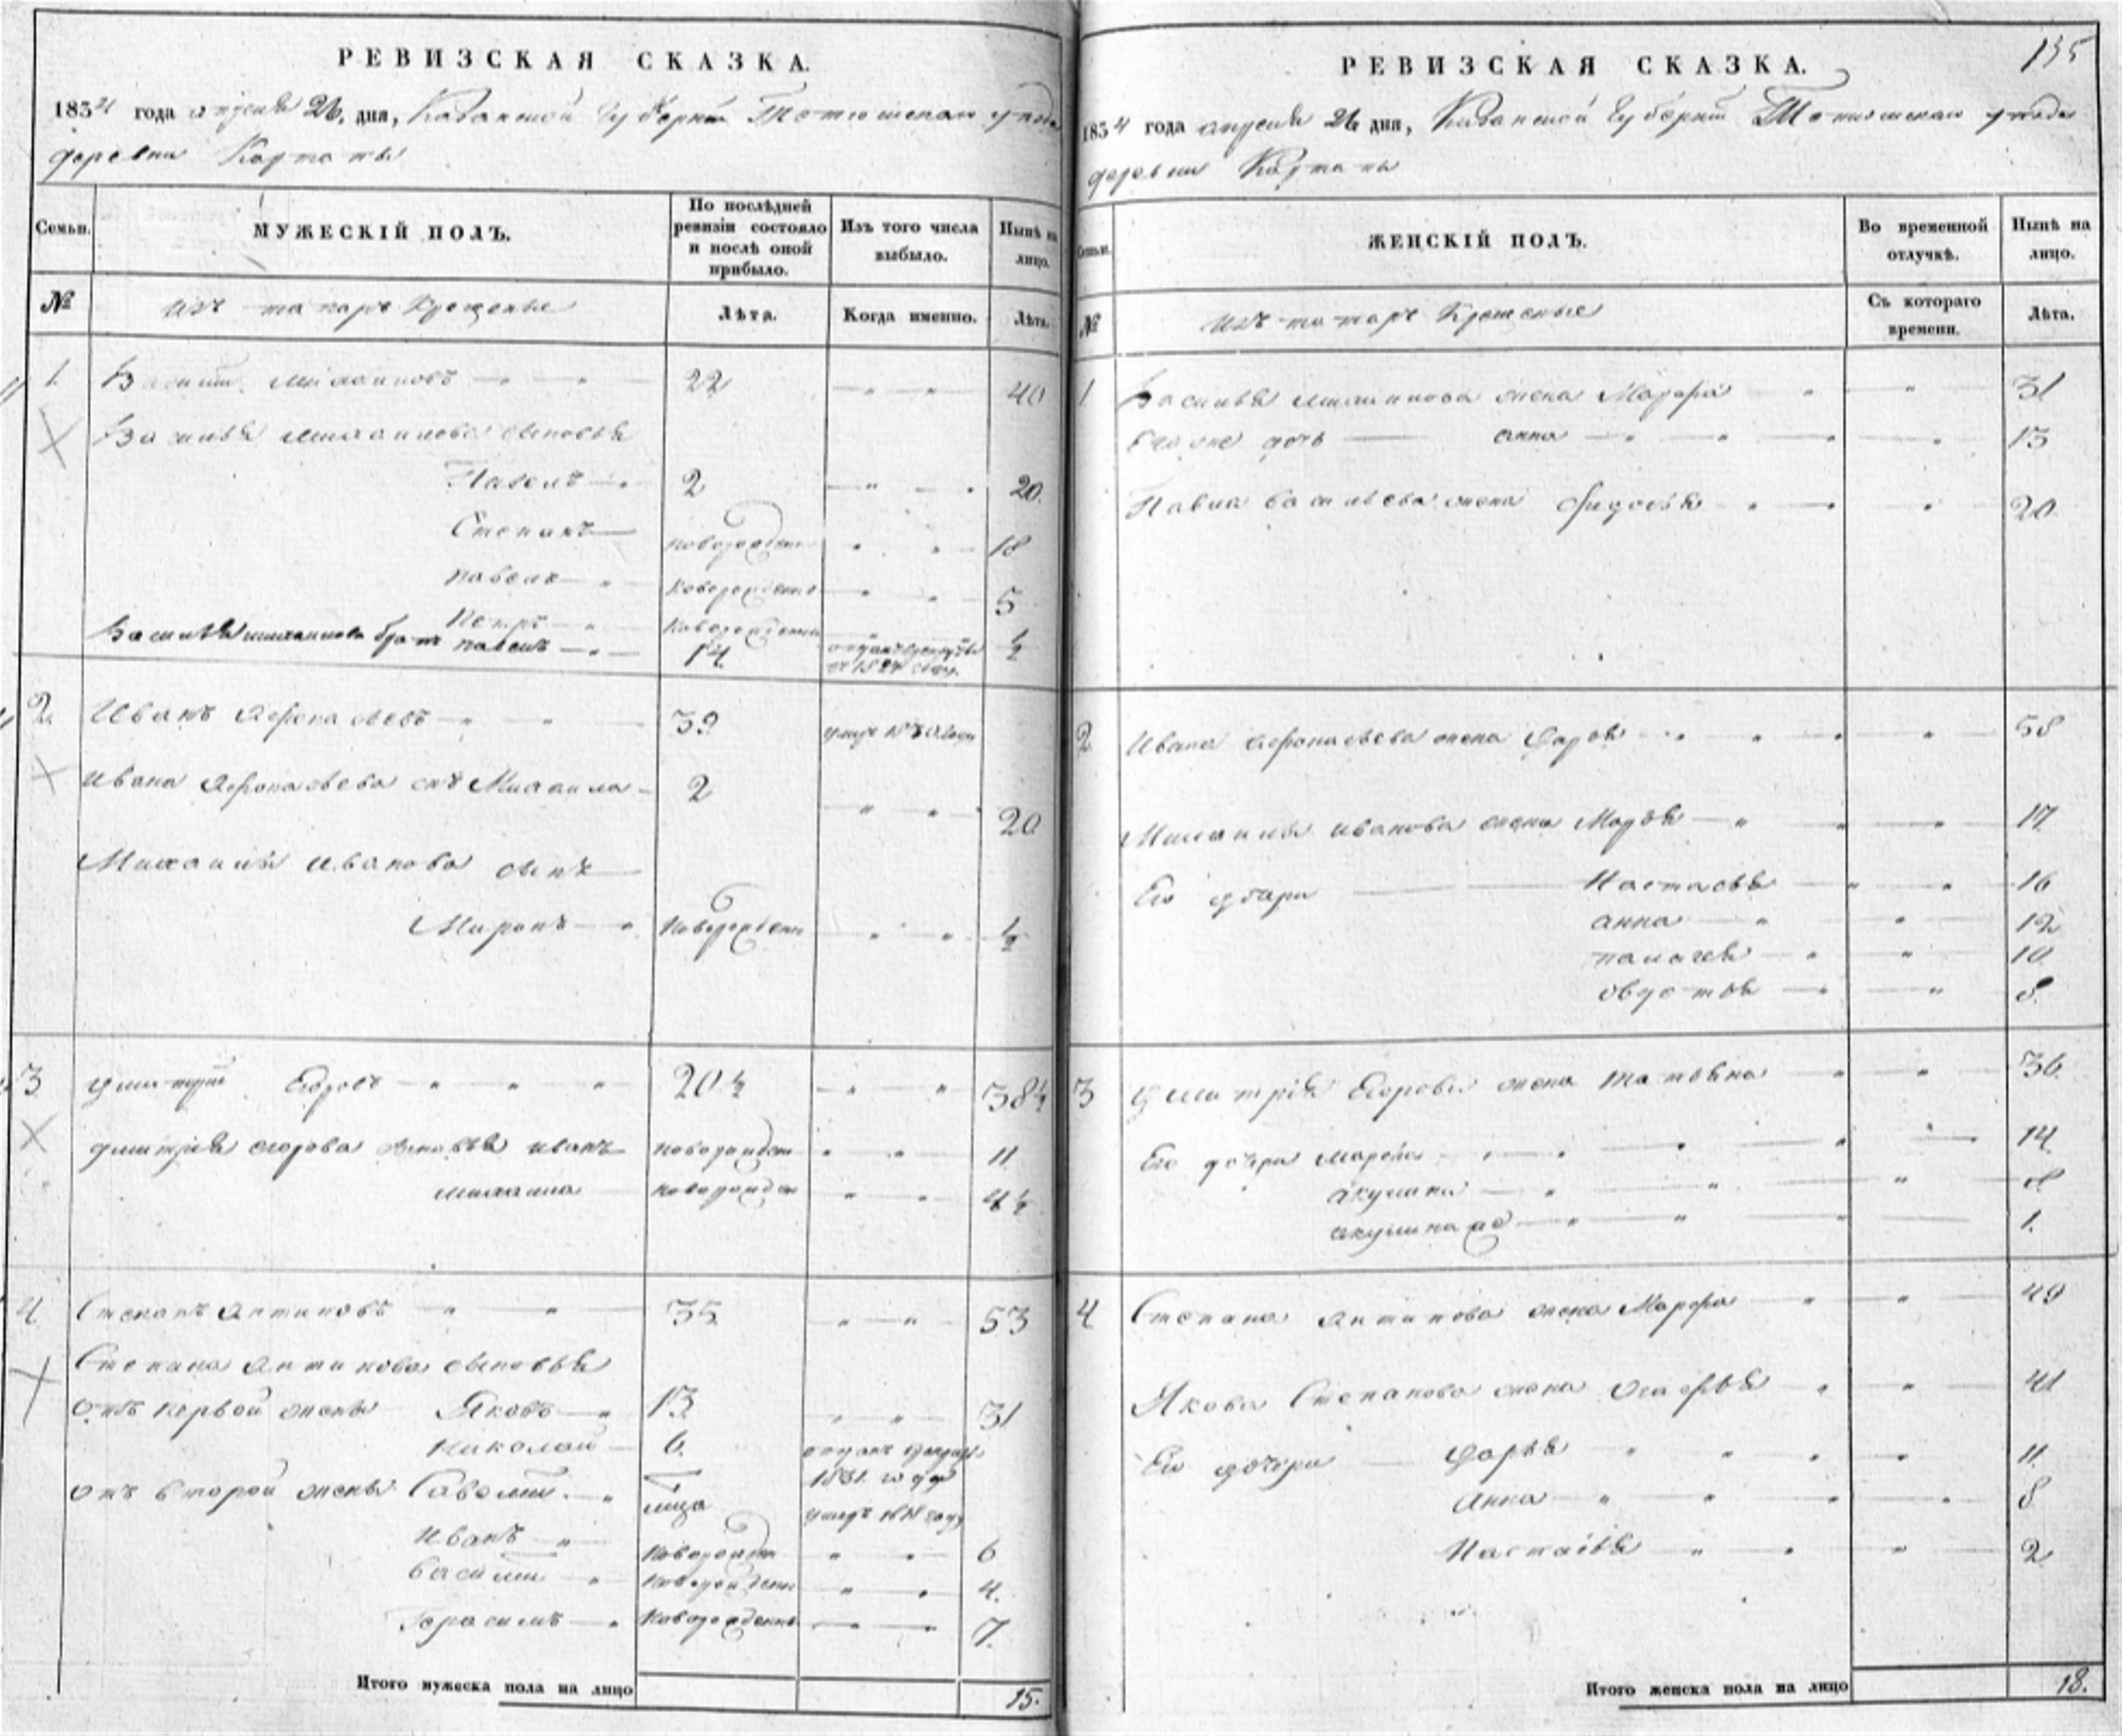 РЕВИЗСКАЯ СКАЗКА.
1834 года апреля 26, дня, Казанской Губернии Тетюшскаго уезда
деревни
Семьи.
МУЖЕСКІЙ ПОЛЪ.
По послѣдней ревизіи состояло и послѣ оной прибыло.
Изъ того числа выбыло.
Нынѣ на лицо.
№
изъ татаръ Крещеные
Лѣта.
Когда именно.
Лѣта.
1. Василий Михаиловъ 22 40
Василья Михаилова сыновья
Павелъ 2 20.
Степанъ новорожден 18
павелъ новорожденъ 5
Петръ новорожденъ 1/2
Василья михаилова братъ павелъ 14 отданъ въ рекруты
2. Иванъ Афонасьевъ 39 умеръ
Ивана Афонасьева снъ Михаила 2 20
Михаила Иванова сынъ
Миронъ новорожденъ 1/2
3 Дмитрий Егоровъ 20 1/2 38 1/2
дмитрия егорова сыновья иванъ новорожден 11
михаила новорожден 4 1/2
4 Степанъ Антиповъ 35 53
Степана Антипова сыновья
отъ первой жены Яковъ 13 31
Николай 6. отданъ в рекруты 1831. году
отъ второй жены Савелий умеръ
Иванъ новорожден 6
Василий новорожден 4.
Герасимъ новорожденъ 7.
Итого мужеска пола на лицо 15.
135
РЕВИЗСКАЯ СКАЗКА.
1834 года апреля 26 дня, Казанской Губернии Тетюшскаго уезда
деревни
Семьи.
ЖЕНСКІЙ ПОЛЪ.
Во временной отлучкѣ.
Нынѣ на лицо.
№
изъ татаръ Крещеные
Съ котораго времени.
Лѣта.
1 Василья михаилова жена Марфа 31
Его же дочь анна 13
Павла васильева жена Фидосья 20
2 Ивана Афонасьева жена Дарья 58
Михаила иванова жена Марья 17
Его дочери Настасья 16
анна 12
палагея 10
овдотья 8.
3 Дмитрія Егорова жена татьяна 36
Его дочери 14
акулина 8
1.
4 Степана Антипова жена Марфа 49
Якова Степанова жена 41
Его дочери Дарья 11
Анна 8
Настасья 2
Итого женска пола на лицо 18.